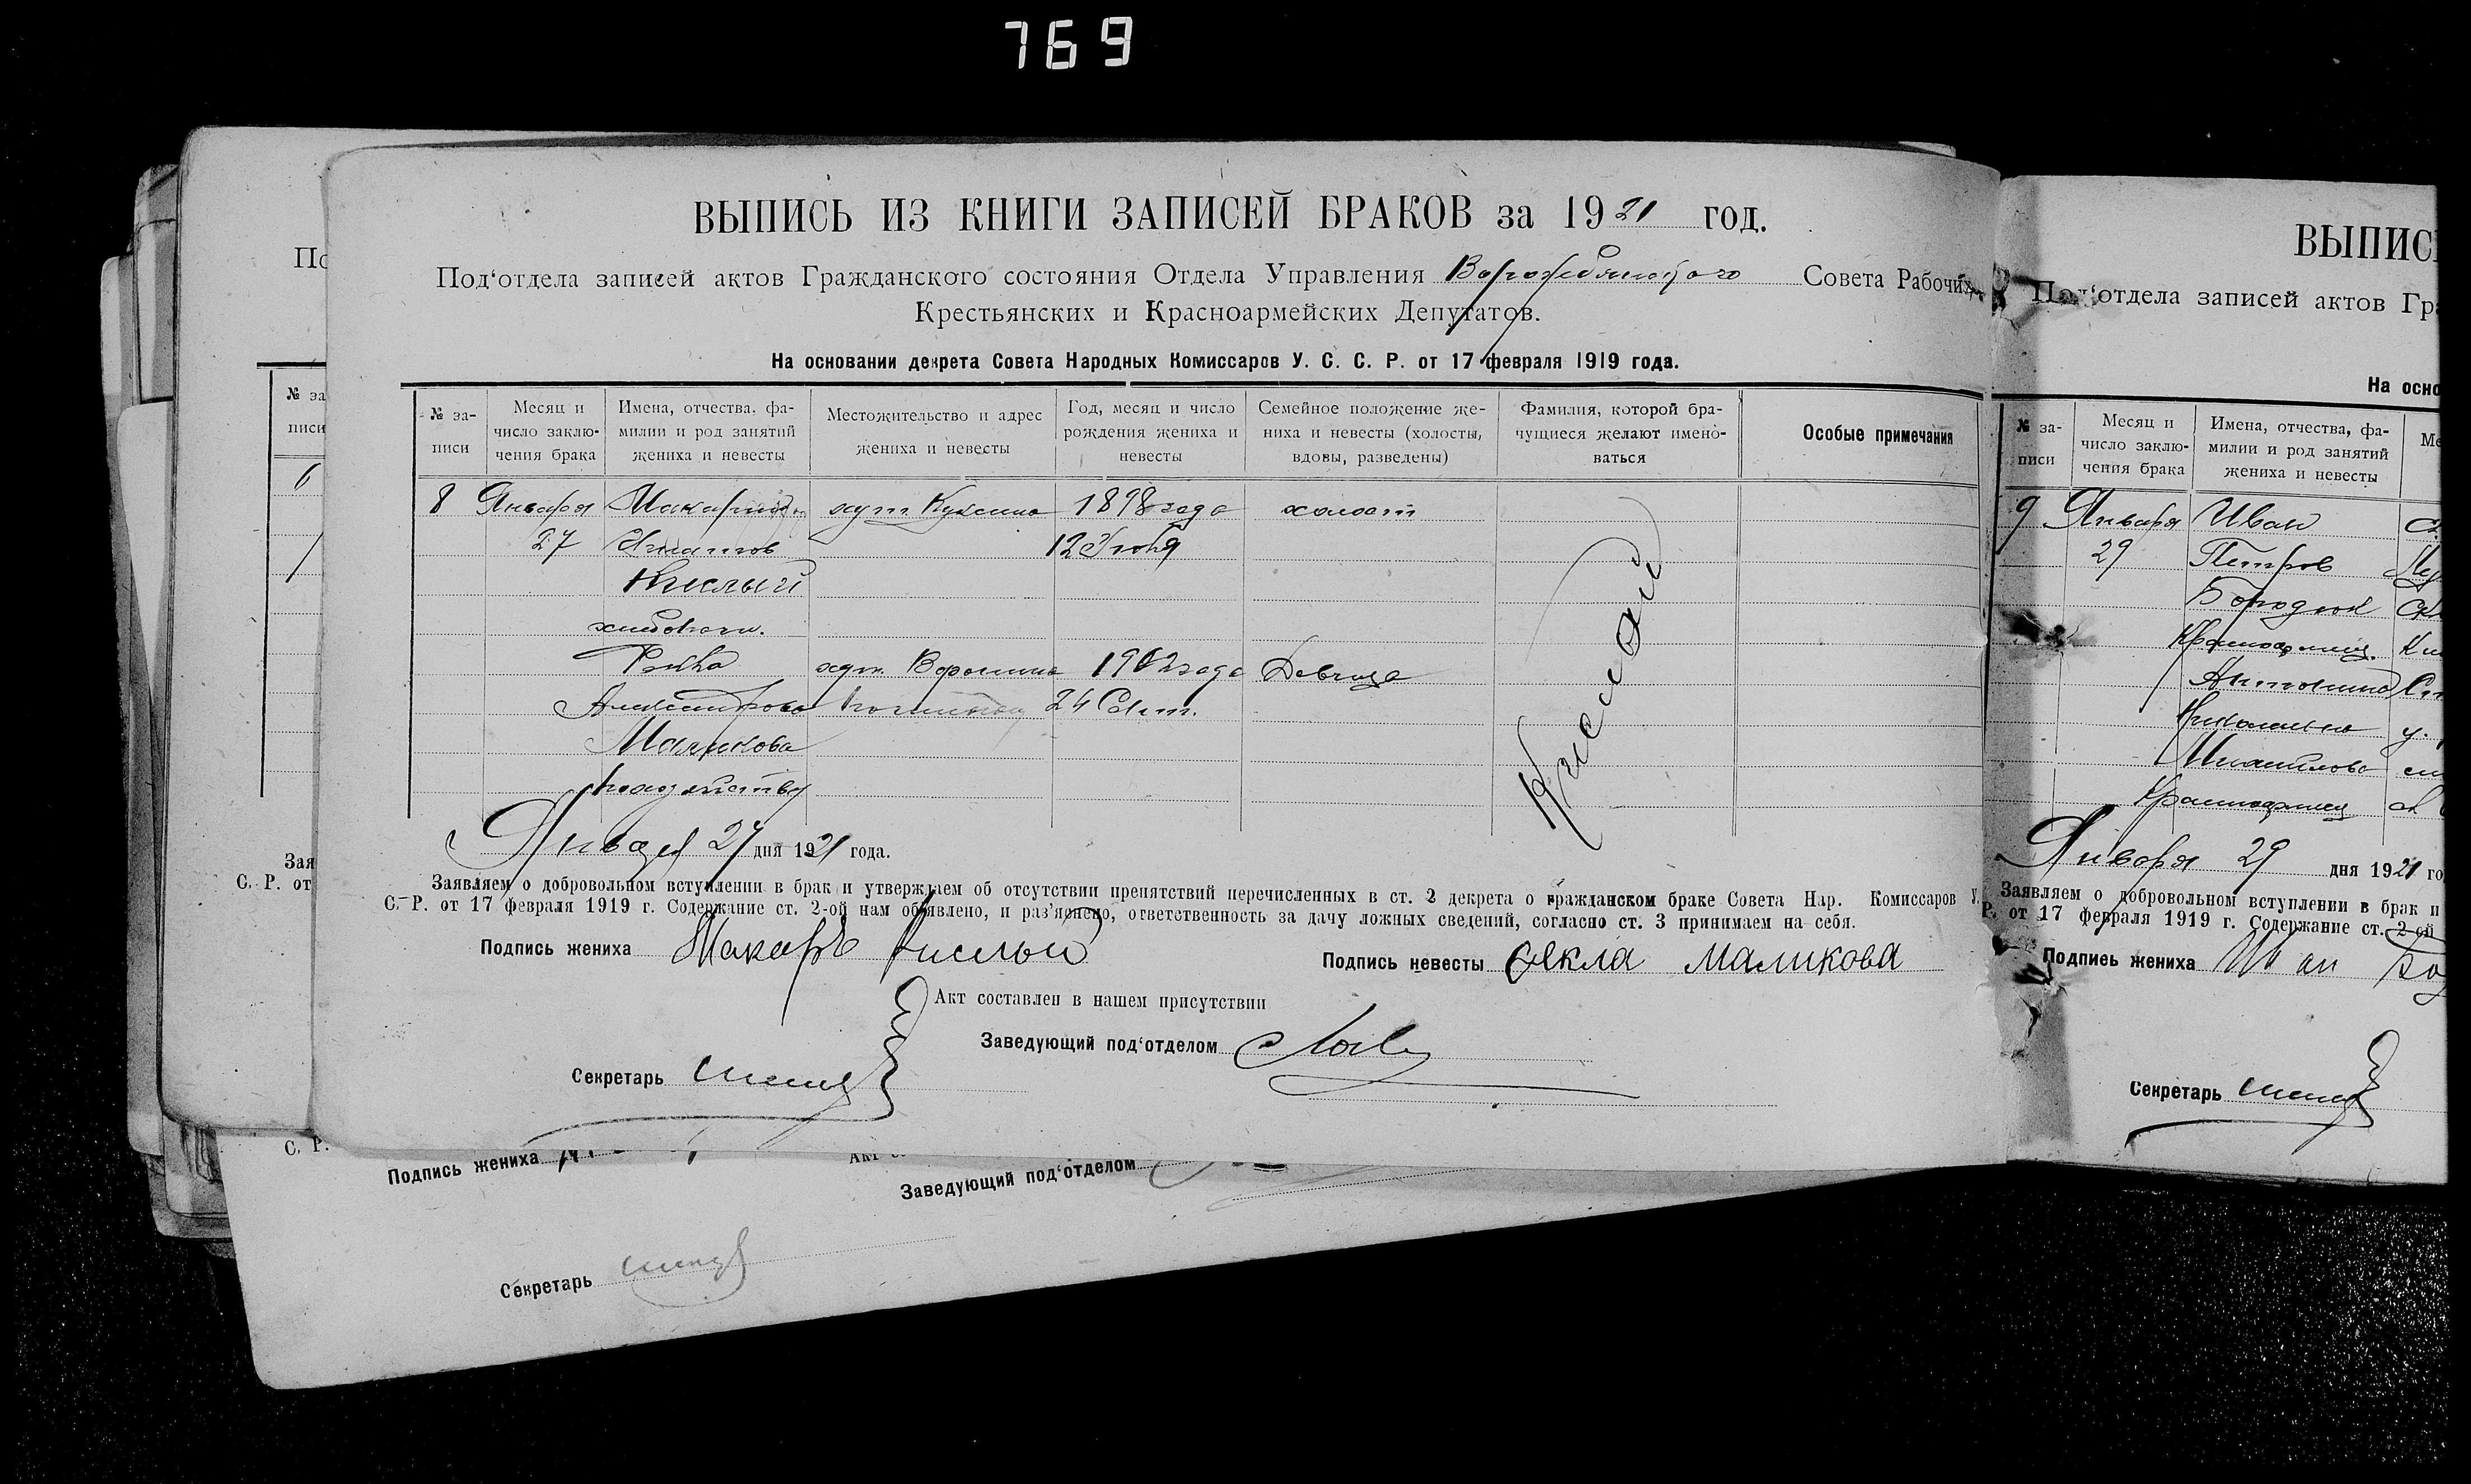 769
ВЫПИСЬ ИЗ КНИГИ ЗАПИСЕЙ БРАКОВ за 1921 год.
Под‘отдела записей актов Гражданского состояния Отдела Управления Ворожбянского Совета Рабочих,
Крестьянских и Красноармейских Депутатов.
На основании декрета Совета Народных Комиссаров У. С. С. Р. от 17 февраля 1919 года.
№ за-
писи
Месяц и
число заклю-
чения брака
Имена, отчества, фа-
милии и род занятий
жениха и невесты
Местожительство и адрес
жениха и невесты
Год, месяц и число
рождения жениха и
невесты
Семейное положение же-
ниха и невесты (холосты,
вдовы, разведены)
Фамилия, которой бра-
чущиеся желают имено-
ваться
Особые примечания
8 Января хут. 1898 года холост
27 12 Июня
Кислый
Фекла хут. 1902 года Девица
Александрова 24 Сент.
Маликова
Кислый
Января 27 дня 1921 года.
Заявляем о добровольном вступлении в брак и утверждаем об отсутствии препятствий перечисленных в ст. 2 декрета о гражданском браке Совета Нар. Комиссаров У.
С. Р. от 17 февраля 1919 г. Содержание ст. 2-ой нам об‘явлено, и раз‘яснено, ответственность за дачу ложных сведений, согласно ст. 3 принимаем на себя.
Подпись жениха Макаръ Кислый
Подпись невесты Фекла Маликова
Акт составлен в нашем присутствии
Заведующий под‘отделом
Секретарь
ВЫПИС
Под‘отдела записей актов Гр
На осно
№ за-
писи
Месяц и
число заклю-
чения брака
Имена, отчества, фа-
милии и род занятий
жениха и невесты
Ме
9 Января Иван
29 Петров
Антонина
Января 29 дня 1921 го
Заявляем о добровольном вступлении в брак и
Р. от 17 февраля 1919 г. Содержание ст. 2-ой
Подпись жениха Иван
Секретарь
По
№ за
писи
6
Зая
С. Р. от
С. Р.
Подпись жениха
Заведующий под‘отделом
Секретарь